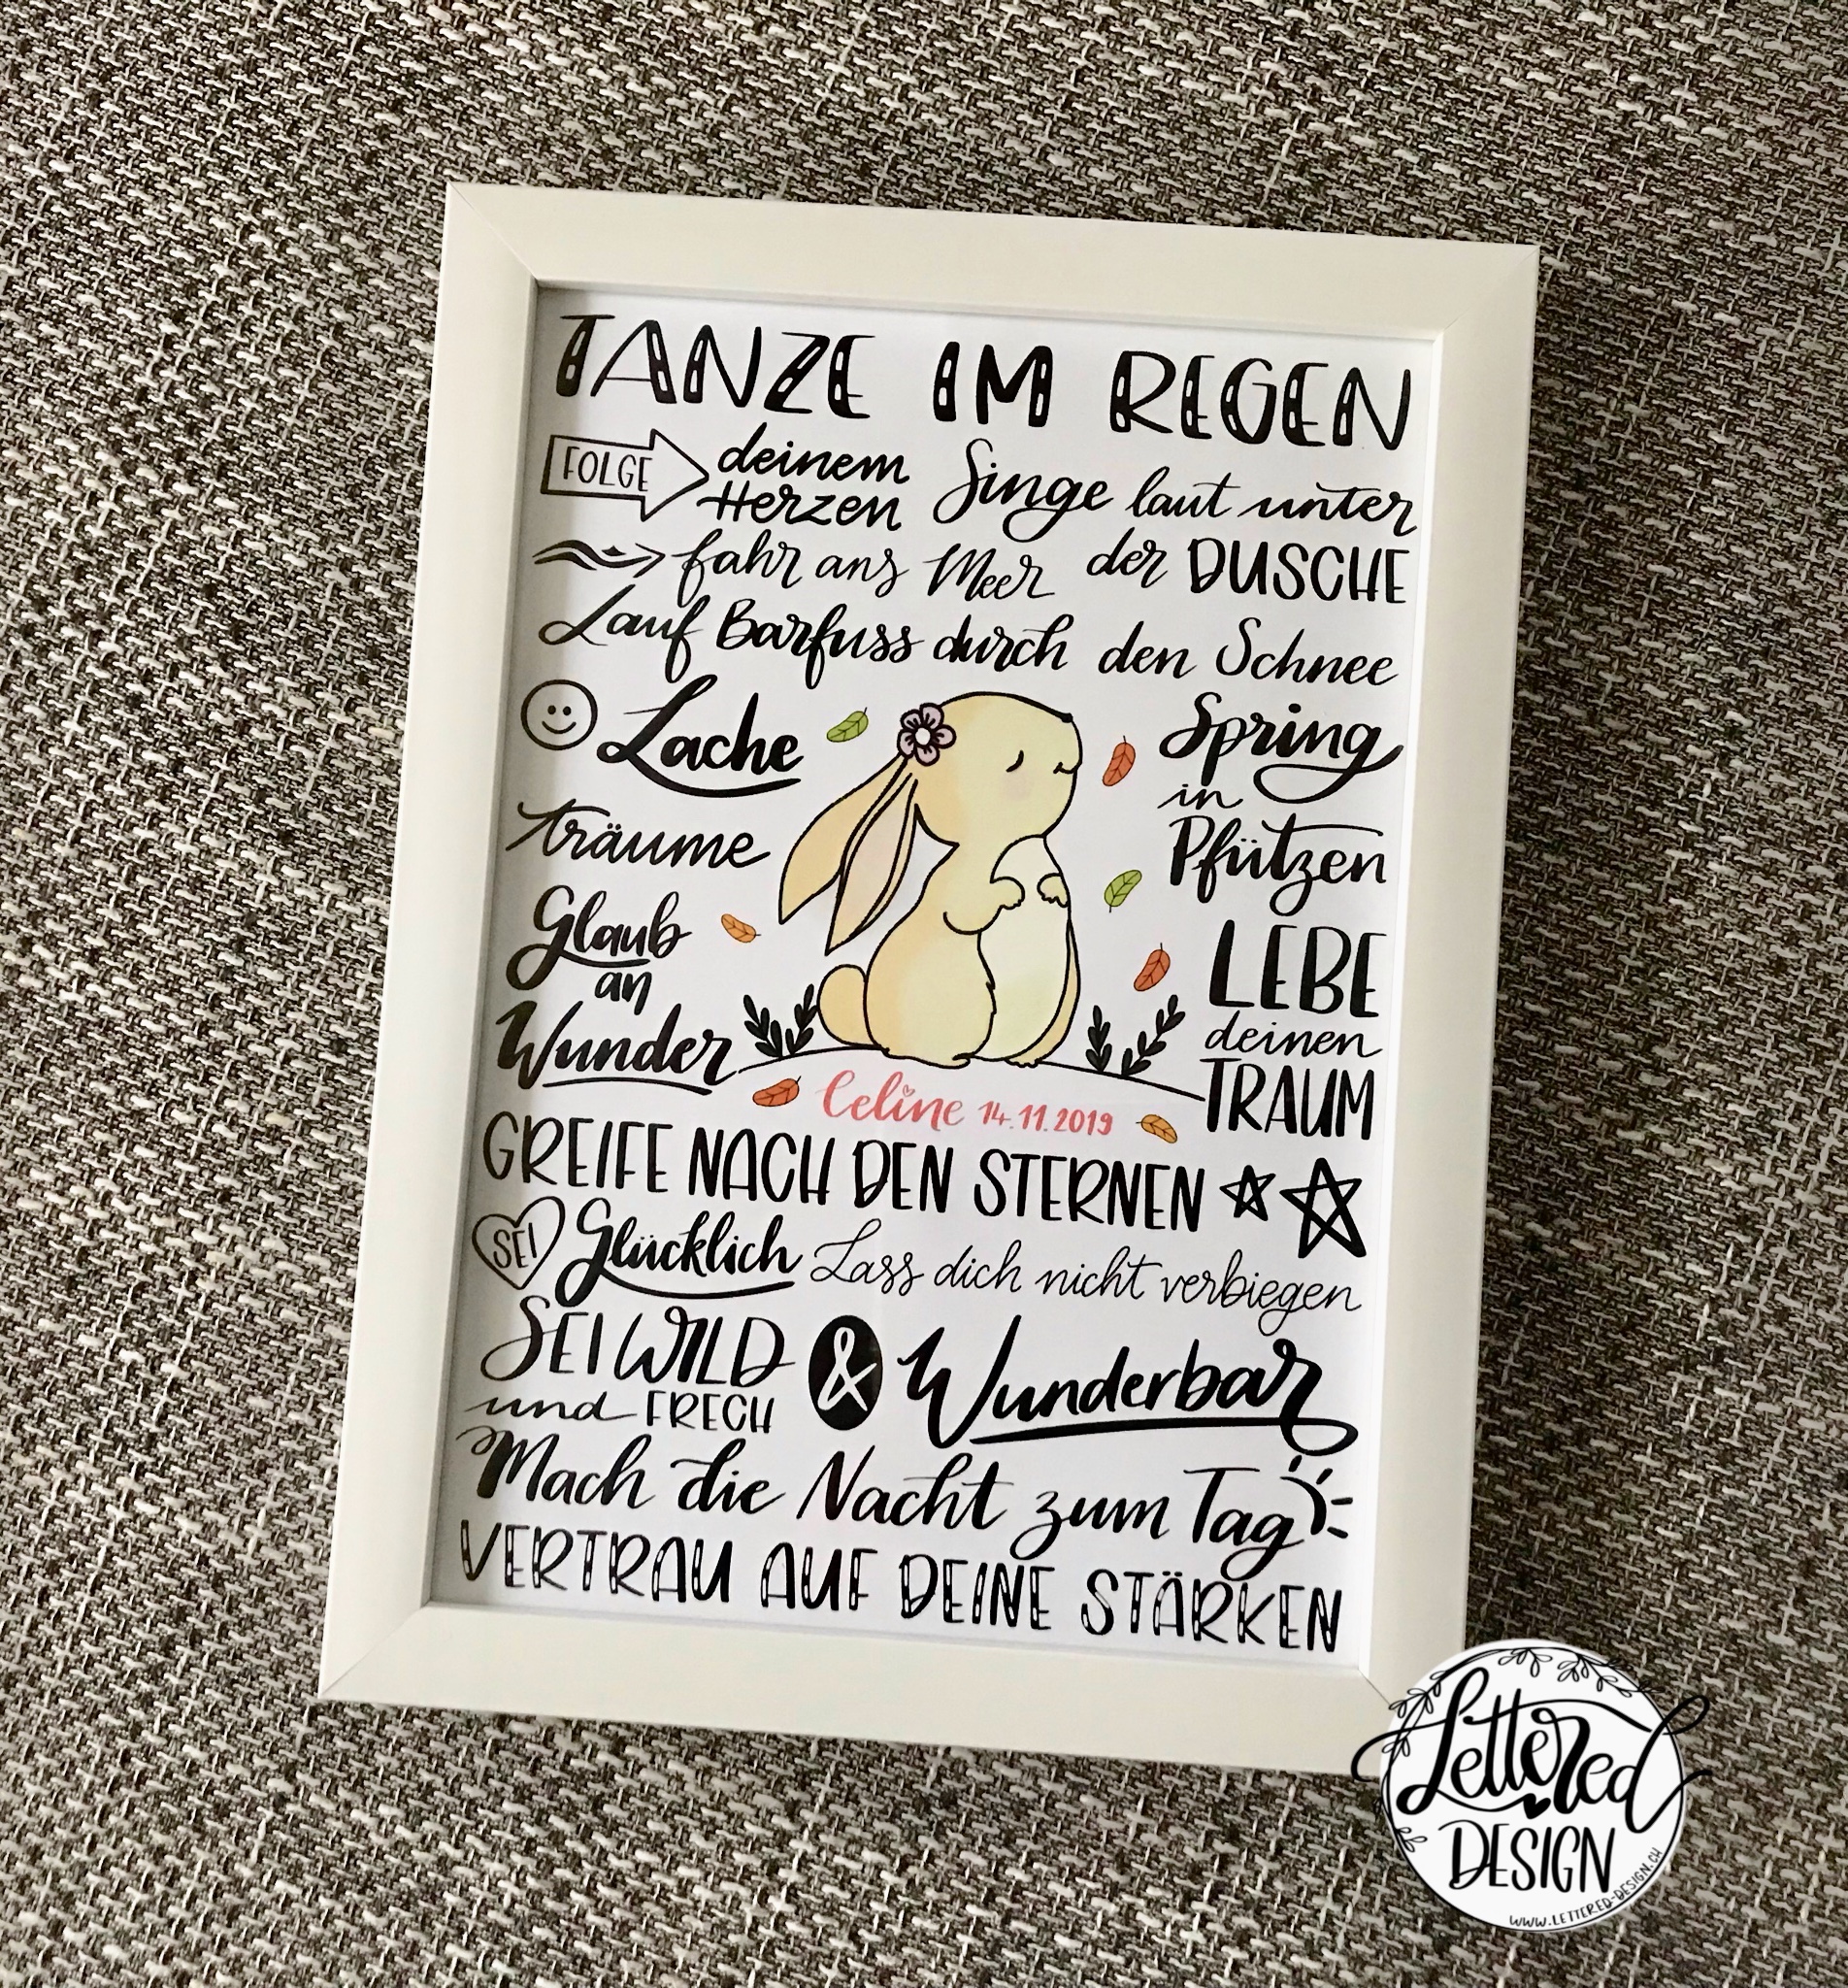 TANZE IM REGEN
FOLGE deinem Herzen
Singe laut unter der DUSCHE
fahr ans Meer
Lauf Barfuss durch den Schnee
Lache
Spring in Pfützen
träume
Glaub an Wunder
LEBE deinen TRAUM
Celine 14.11.2019
GREIFE NACH DEN STERNEN
SEI Glücklich
Lass dich nicht verbiegen
SEI WILD und FRECH & Wunderbar
Mach die Nacht zum Tag
VERTRAU AUF DEINE STÄRKEN
Lettered
DESIGN
WWW.LETTERED-DESIGN.CH